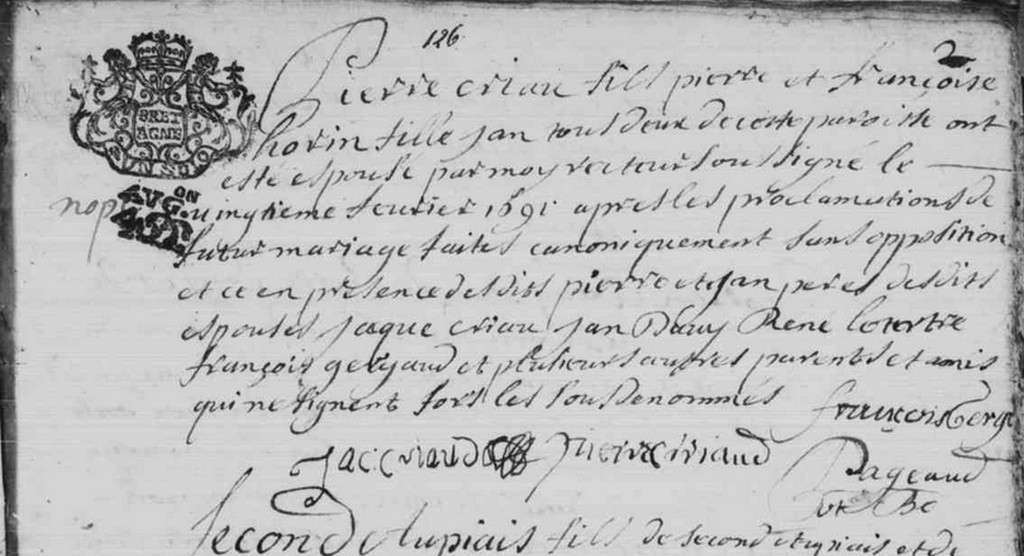 126
2
BRET
AGNE
Pierre criau fils pierre et françoise
horin fille jan tous deux de cette paroisse ont
esté espousé par moy recteur soussigné le
nop vingtieme feuvrier 1691 apres les proclamations de
futur mariage faites canoniquement sans opposition
et ce en presence desdits pierre et jan peres desdits
espouses jaque criau jan René
françois gergaud et plusieurs autres parents et amis
qui ne signent fors les sousdenommés françois Gerg
Jac criaud pierre criaud
Pageaud
Second fils de second et de